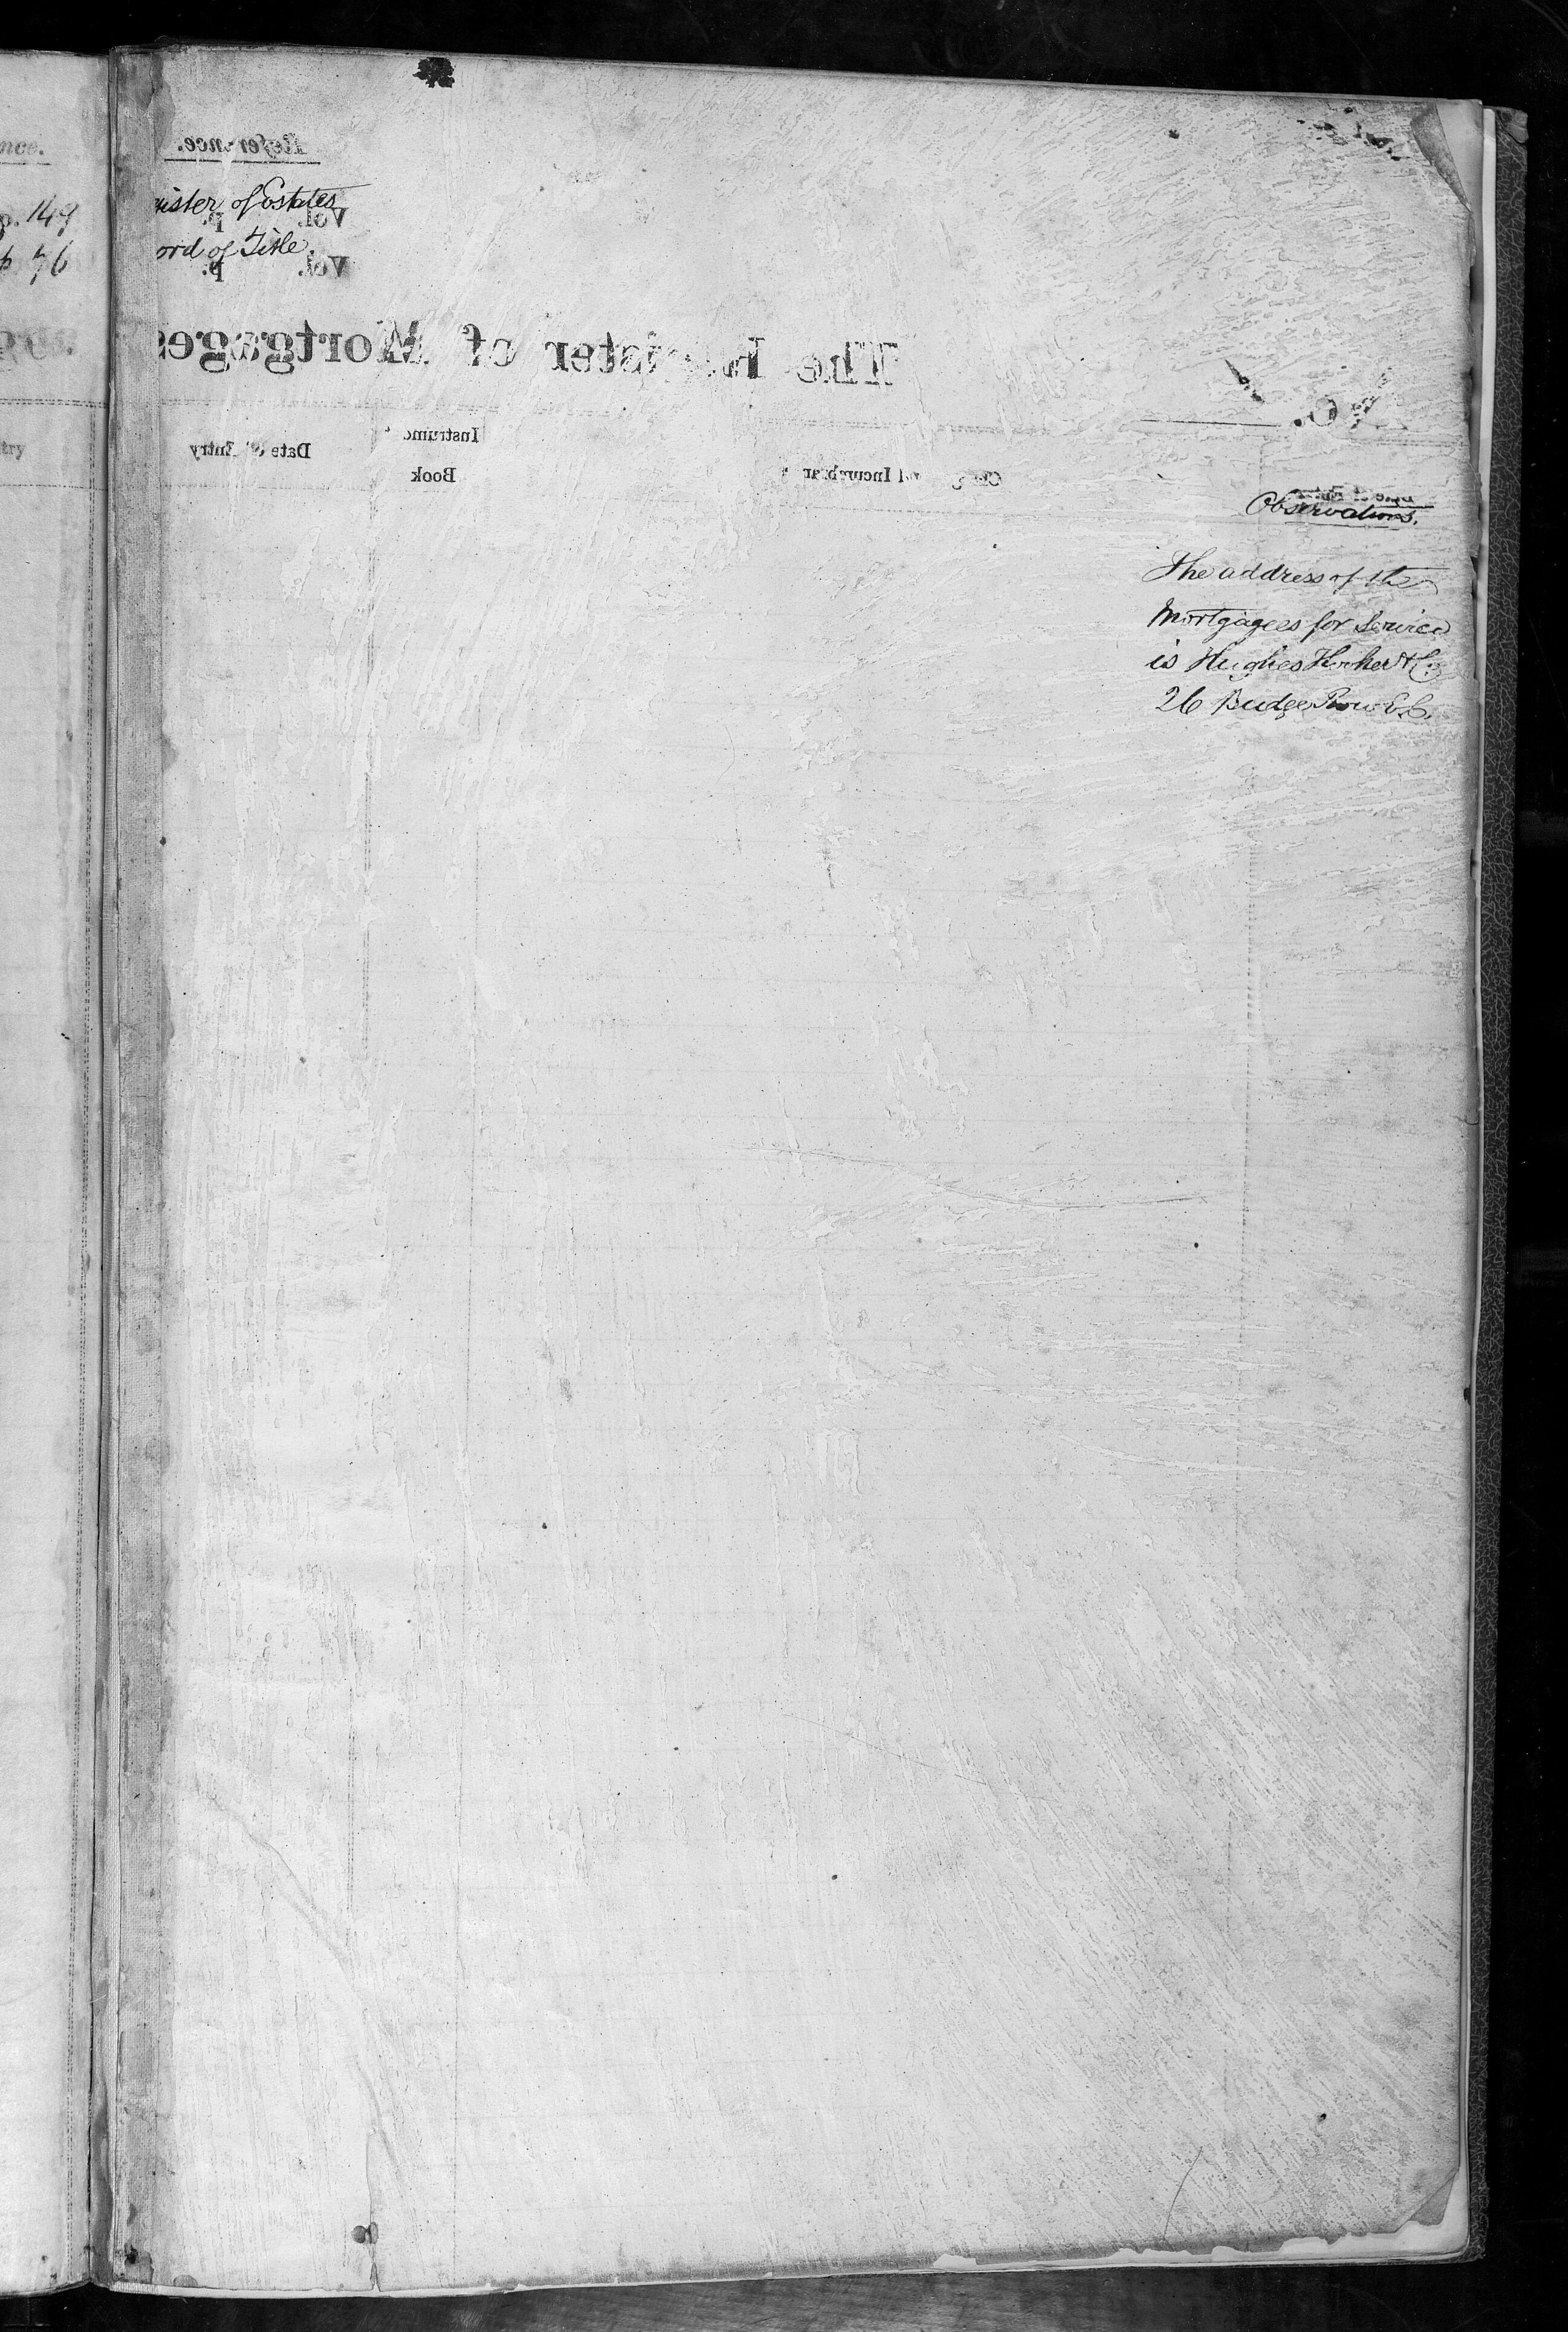 nce.
Reference.
p. 149
gister of Estates
Vol. p.
p 76
ord of Title
Vol. p.
The Register of Mortgages
Instrument
Book
Date of Entry
try
Observations.
The address of the
Mortgagees for Service
is Hughes Hooker & Co
26 Budge Row E.C.